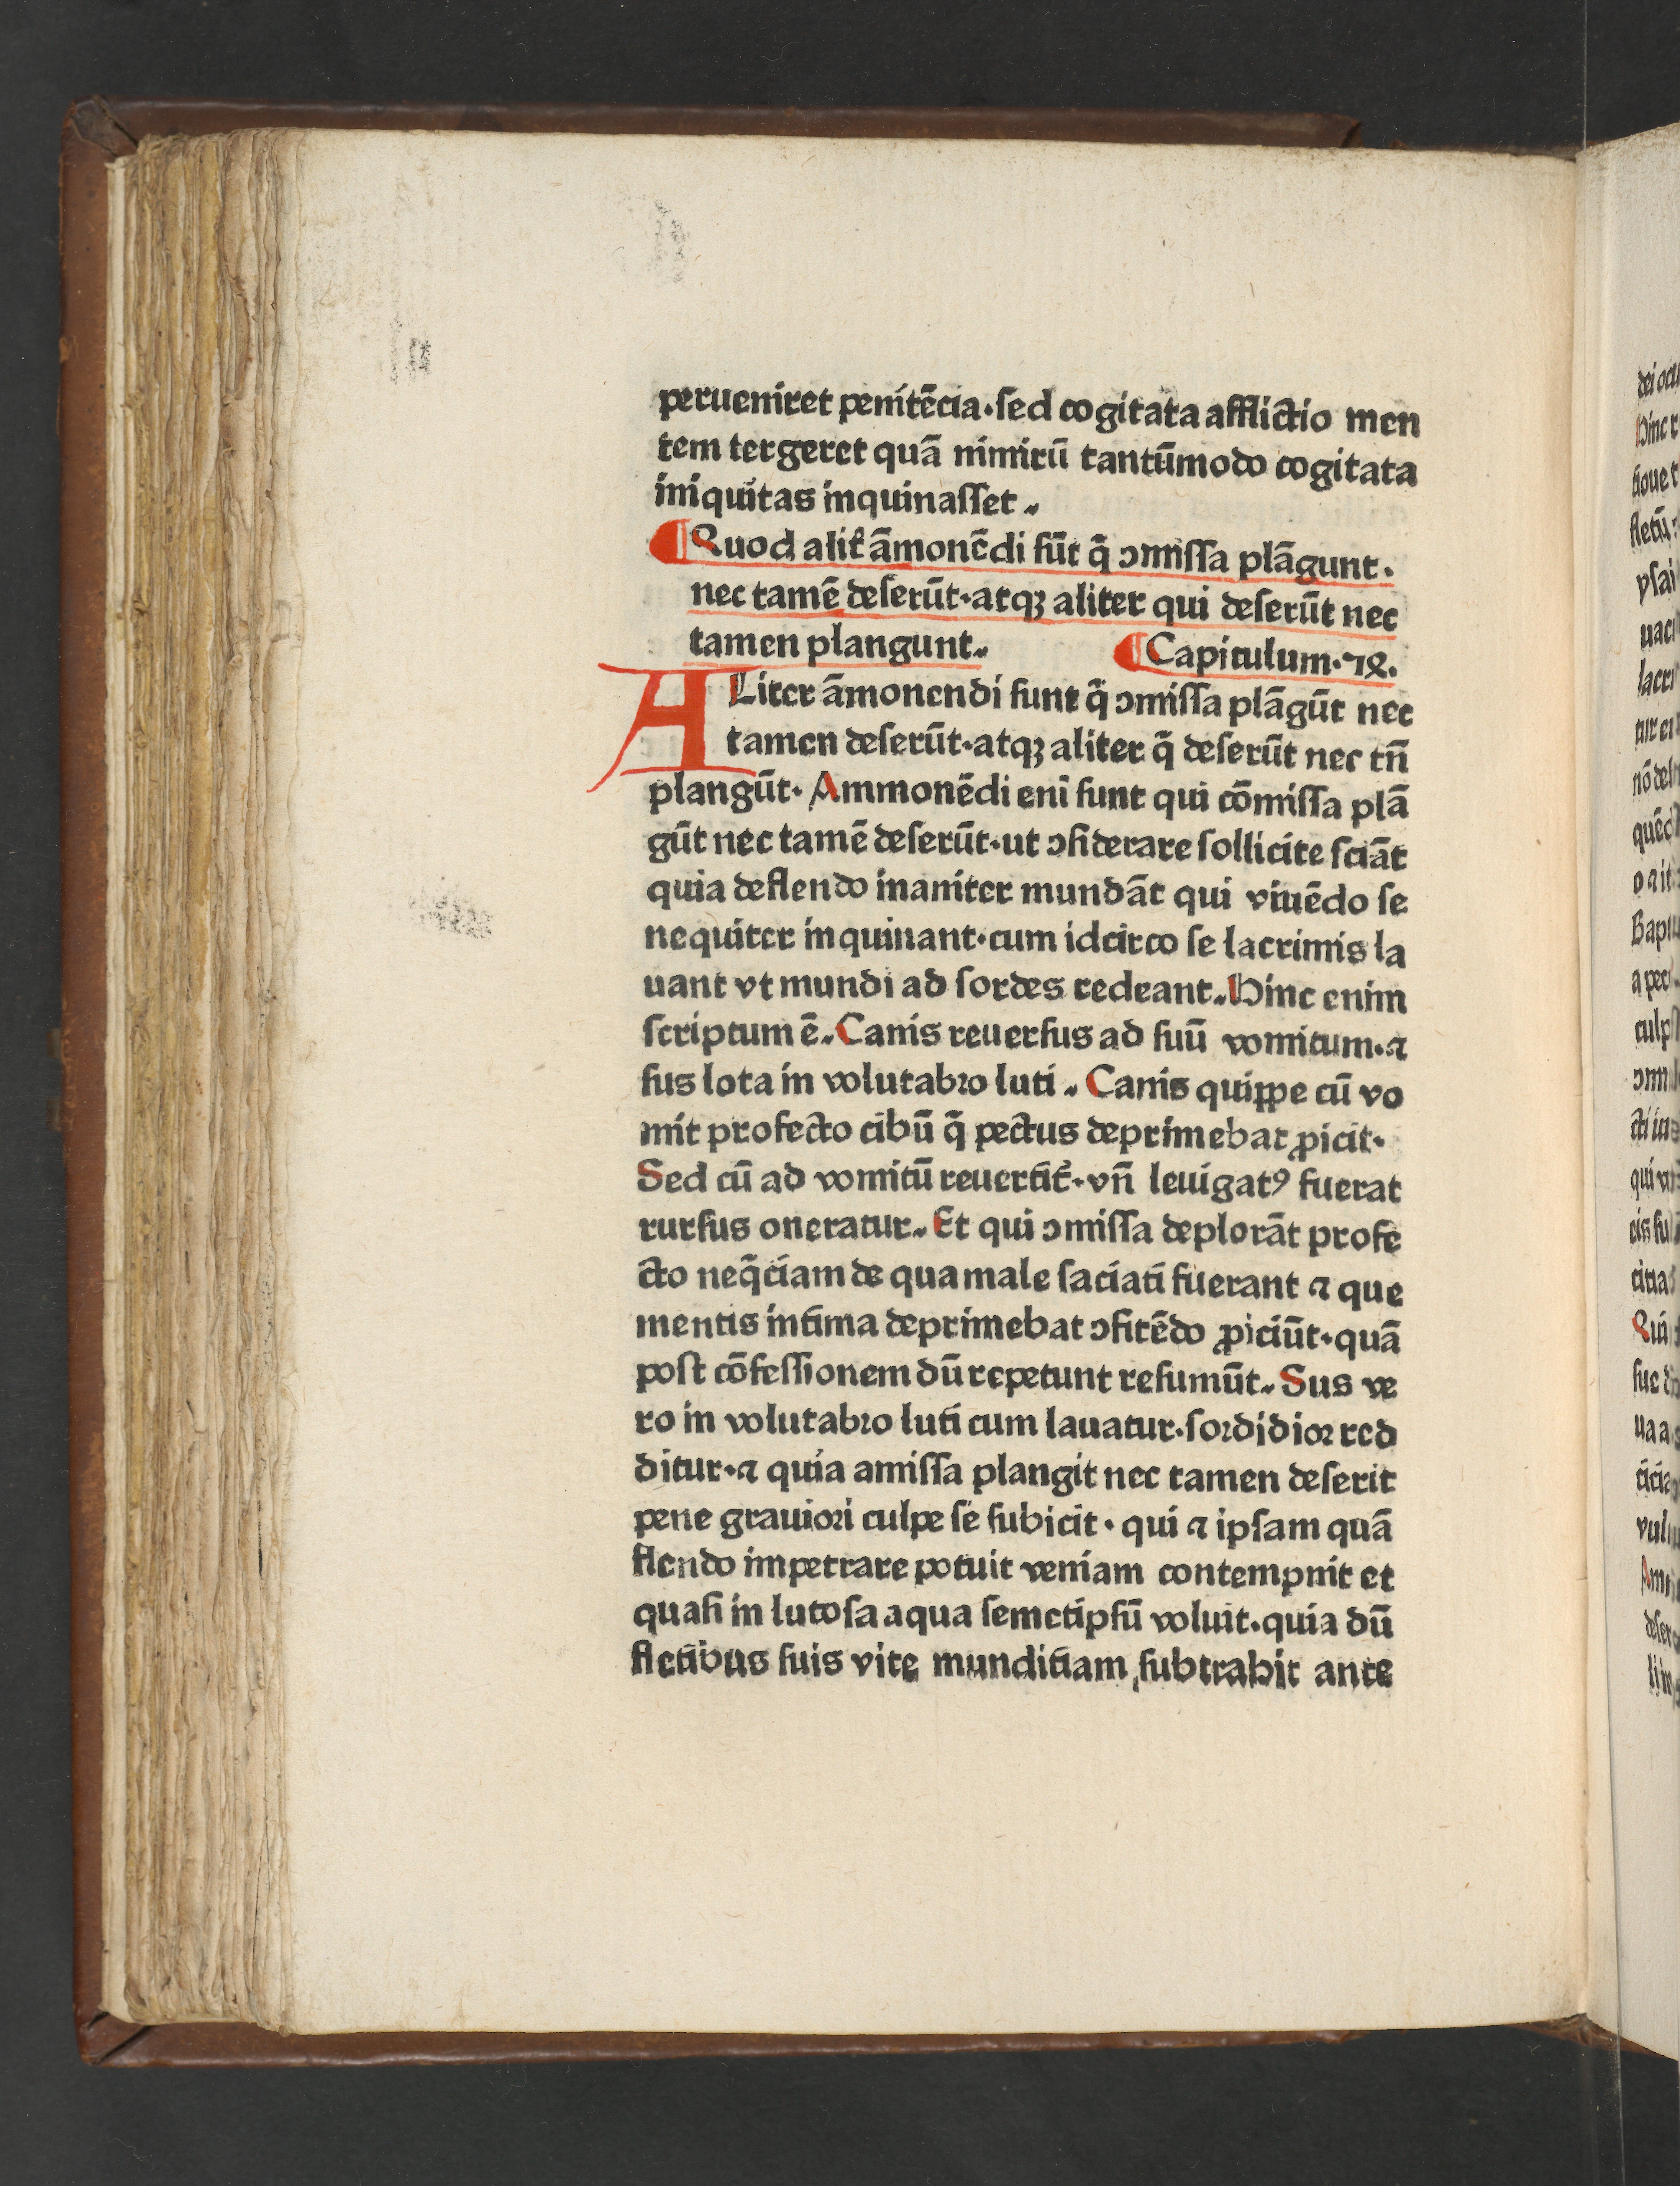 perueniret penitēcia·sed cogitata afflictio men
tem tergeret quā nimirū tantūmodo cogitata
iniquitas inquinasset.
¶Quod alit̄ āmonēdi sūt q̄ ↄmissa plāgunt.
nec tamē deserūt·atqꝫ aliter qui deserūt nec
tamen plangunt. ¶Capitulum·72.
ALiter āmonendi sunt q̄ ↄmissa plāgūt nec
tamen deserūt·atqꝫ aliter q̄ deserūt nec tn̄
plangūt· Ammonēdi eni sunt qui cōmissa plā
gūt nec tamē deserūt·ut ↄsiderare sollicite sciāt
quia deflendo inaniter mundāt qui viuēdo se
nequiter inquinant·cum idcirco se lacrimis la
uant vt mundi ad sordes redeant. Hinc enim
scriptum ē. Canis reuersus ad suū vomitum·⁊
sus lota in volutabro luti. Canis quippe cū vo
mit profecto cibū q̄ pectus deprimebat ꝓicit·
Sed cū ad vomitū reuertit̄·vn̄ leuigatꝰ fuerat
rursus oneratur. Et qui ↄmissa deplorāt profe
cto neq̄ciam de qua male saciati fuerant ⁊ que
mentis intima deprimebat ↄfitēdo ꝓiciūt·quā
post cōfessionem dū repetunt resumūt. Sus ve
ro in volutabro luti cum lauatur·sordidior red
ditur·⁊ quia amissa plangit nec tamen deserit
pene grauiori culpe se subicit· qui ⁊ ipsam quā
flendo impetrare potuit veniam contempnit et
quasi in lutosa aqua semetipsū voluit·quia dū
fletibus suis vite munditiam subtrahit ante